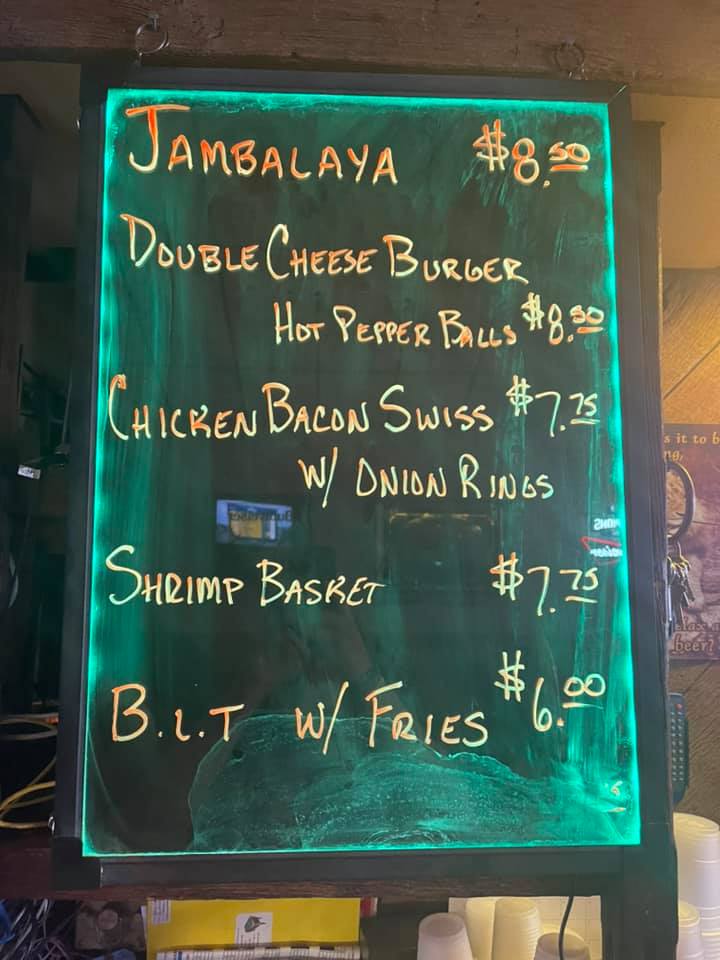 JAMBALAYA $8.50
DOUBLE CHEESE BURGER
HOT PEPPER BALLS $8.50
CHICKEN BACON SWISS $7.75
W/ ONION RINGS
SHRIMP BASKET $7.75
B.L.T W/ FRIES $6.00
s it to b
beer?